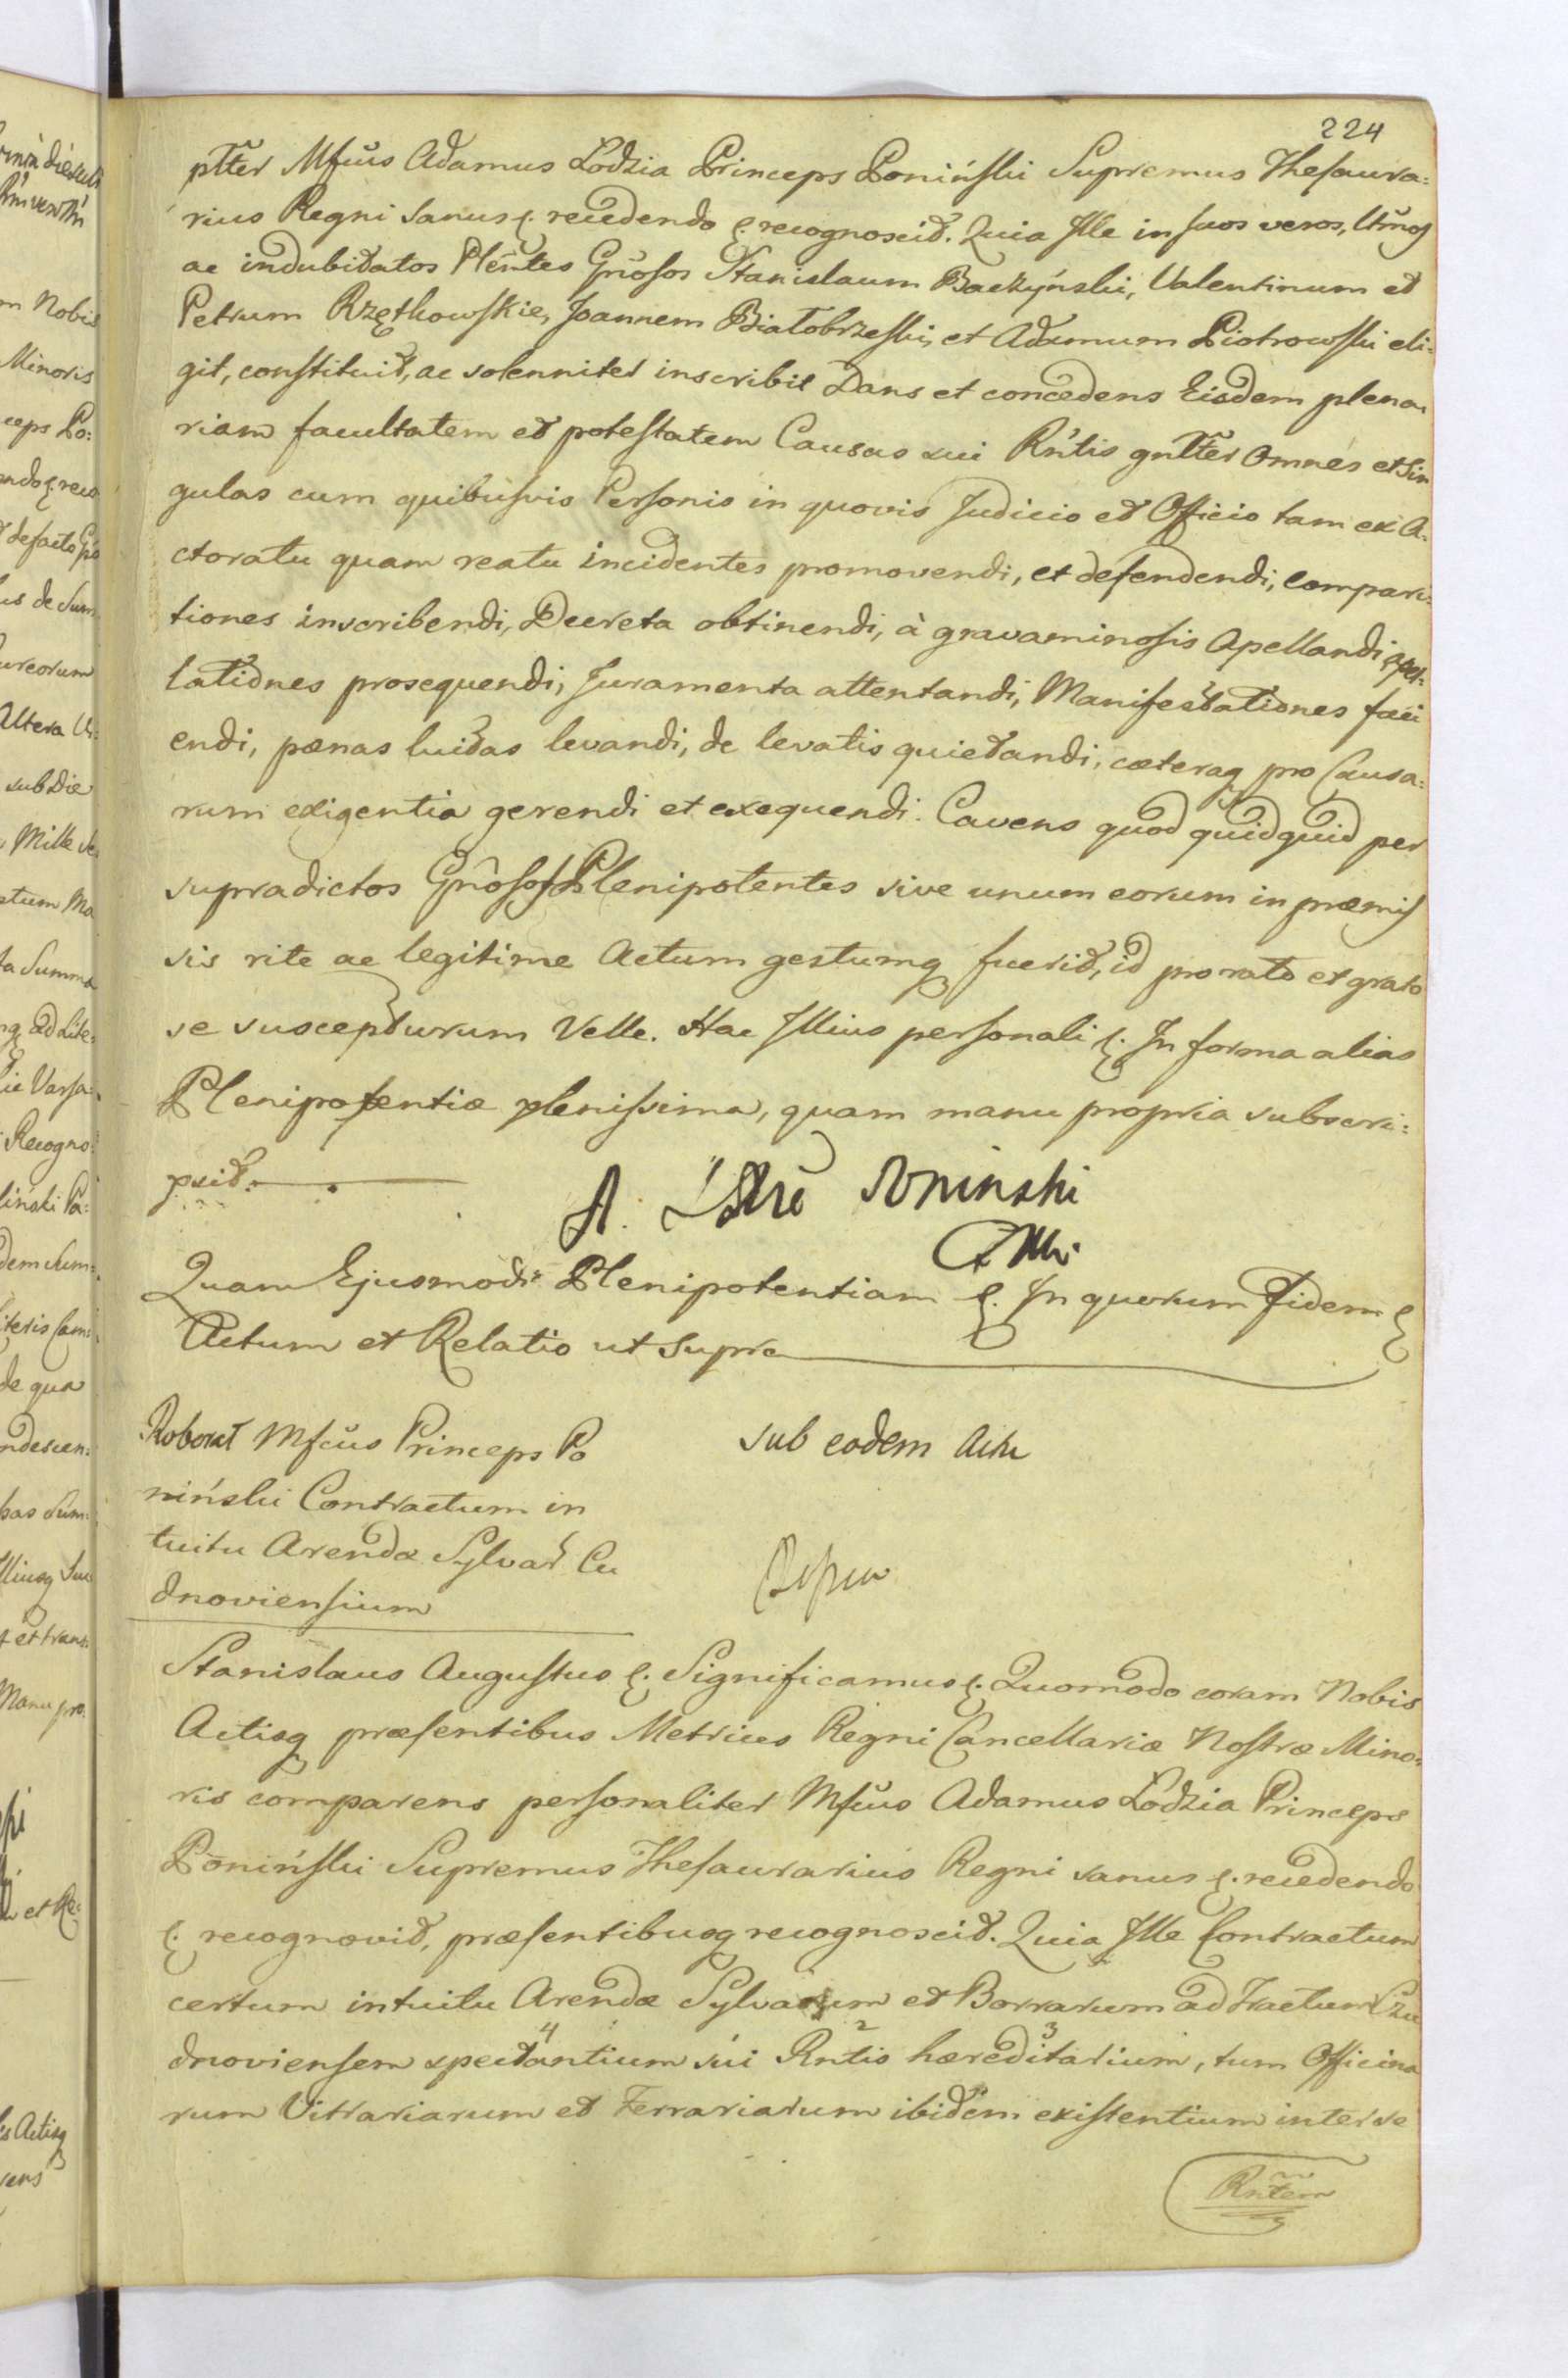 224
pltter Mfcus Adamus Lodzia Princeps Poniński Supremus Thesaura=
rius Regni sanus &. recedendo &. recognoscit. Quia Ille in suos veros, lttmos
ac indubitatos Plentes Gnosos Stanislaum Baczyński, Valentinum et
Petrum Rzętkowskie, Joannem Białobrzeski, et Adamum Piotrowski eli=
git, constituit, ac solenniter inscribit Dans et concedens Eisdem plena
riam facultatem et potestatem Causas sui Rntis gnltter omnes et Sin
gulas cum quibusvis Personis in quovis Judicio et Officio tam ex A=
ctoratu quam reatu incidentes promovendi, et defendendi, Compari=
tiones inscribendi, Decreta obtinendi, à gravaminosis Apellandi apel=
lationes prosequendi, Juramenta attentandi, Manifestationes faci
endi, pænas luitas levandi, de levatis quietandi, cæteraq pro Causa=
rum exigentia gerendi et exequendi. Cavens quod quidquid per
supradictos Gnosos Plenipotentes sive unum eorum in præmis
sis rite ac legitime Actum gestumq fuerit, id pro rato et grato
se suscepturum Velle. Hac Illius personali &. In forma alias
Plenipotentiæ plenissima, quam manu propria subscri=
psit.
A. Poninski
Quam Ejusmodi Plenipotentiam &. In quorum Fidem &
Actum et Relatio ut supra
Roborat Mfcus Princeps Po
niński Contractum in
tuitu Arendæ Sylvar Cu
dnoviensium
sub eodem Actu
Stanislaus Augustus &. Significamus &. Quomodo coram Nobis
Actisq præsentibus Metrices Regni Cancellariæ Nostræ Mino=
ris comparens personaliter Mfcus Adamus Lodzia Princeps
Poniński Supremus Thesaurarius Regni sanus &. recedendo
&. recognovit, præsentibusq recognoscit. Quia Ille Contractum
certum intuitu Arendæ Sylvarum et Borrarum ad Tractum Czu
dnoviensem spectantium sui Rntis hæreditarium, tum Officina
4 2 3
rum Vitrariarum et Ferrariarum ibidem existentium inter se
Rntem